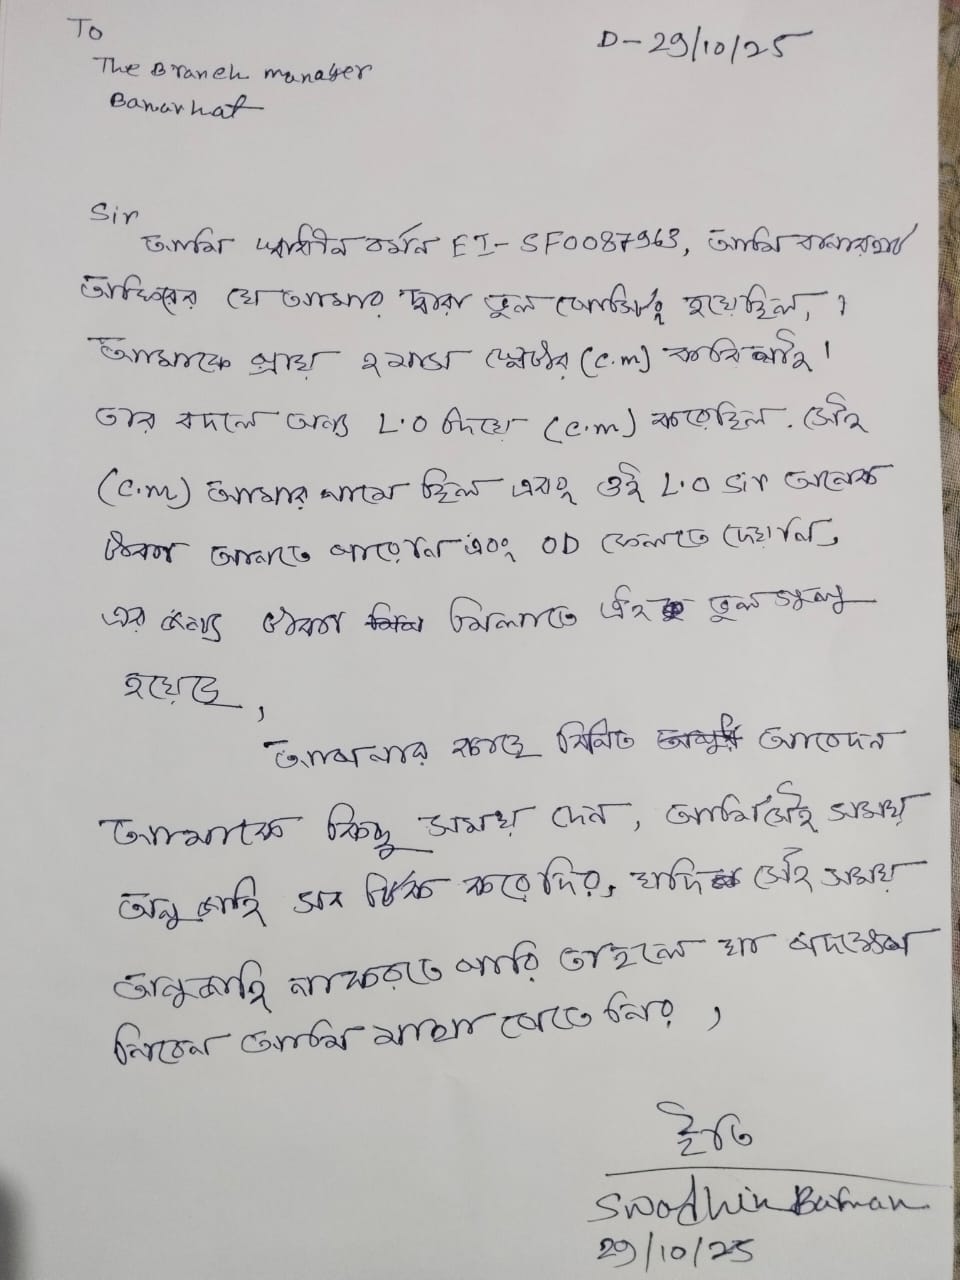 To
D-29/10/25
The Branch manager
Banarhat
Sir
আমি স্বাধীন বর্মন EI- SF0087963, আমি বানারহাট
অফিসের যে আমার দ্বারা ভুল পোস্টিং হয়েছিল, ।
আমাকে প্রায় ২ মাস সেন্টার (c.m) করিনাই।
তার বদলে অন্য L.O দিয়ে (c.m) করেছিল. সেই
(c.m) আমার নামে ছিল এবং ওই L.O Sir অনেক
টাকা আনতে পারেনি এবং OD ফেলতে দেয়নি,
এর জন্য টাকা মিলাতে এই ভুল গুলু
হয়েছে,
আপনার কাছে বিনিত আবেদন
আমাকে কিছু সময় দেন, আমি সেই সময়
অনুজাই সব ঠিক করে দিব, যদি সেই সময়
অনুজাই না করতে পারি তাহলে যা পদক্ষেপ
নিবেন আমি মাথা পেতে নিব,
ইতি
Swadhin Barman
29/10/25